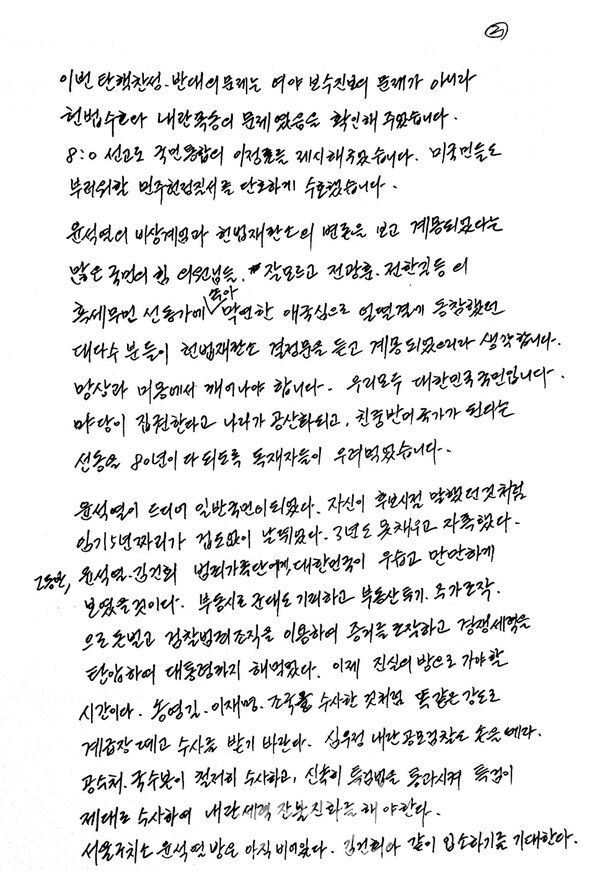 ②
이번 탄핵찬성·반대의 문제는 여야 보수진보의 문제가 아니라
헌법수호와 내란폭동의 문제였음을 확인해 주었습니다.
8:0 선고로 국민통합의 이정표를 제시해주었습니다. 미국민들도
부러워할 민주헌정질서를 단호하게 수호했습니다.
윤석열의 비상계엄과 헌법재판소의 변론을 보고 계몽되었다는
많은 국민의힘 의원님들, 잘모르고 전광훈·전한길 등의
혹세무민 선동가에 속아 막연한 애국심으로 얼떨결에 동참했던
대다수 분들이 헌법재판소 결정문을 듣고 계몽되었으리라 생각합니다.
망상과 미몽에서 깨어나야 합니다. 우리모두 대한민국 국민입니다.
야당이 집권한다고 나라가 공산화되고, 친중반미국가가 된다는
선동을 80년이 다 되도록 독재자들이 우려먹었습니다.
윤석열이 드디어 일반국민이 되었다. 자신이 후보시절 말했던 것처럼
임기5년짜리가 겁도없이 날뛰었다. 3년도 못채우고 자폭했다.
그동안, 윤석열·김건희 범죄가족단에게, 대한민국이 우습고 만만하게
보였을 것이다. 부동시로 군대도 기피하고 부동산투기·주가조작·
으로 돈벌고 검찰범죄조직을 이용하여 증거를 조작하고 경쟁세력을
탄압하여 대통령까지 해먹었다. 이제 진실의 방으로 가야할
시간이다. 송영길·이재명·조국을 수사한 것처럼 똑같은 강도로
계급장 떼고 수사를 받기 바란다. 심우정 내란공모검찰도 손을 떼라.
공수처·국수본이 철저히 수사하고, 신속히 특검법을 통과시켜 특검이
제대로 수사하여 내란세력 잔불진화를 해야한다.
서울구치소 윤석열 방은 아직 비어있다. 김건희와 같이 입소하기를 기대한다.